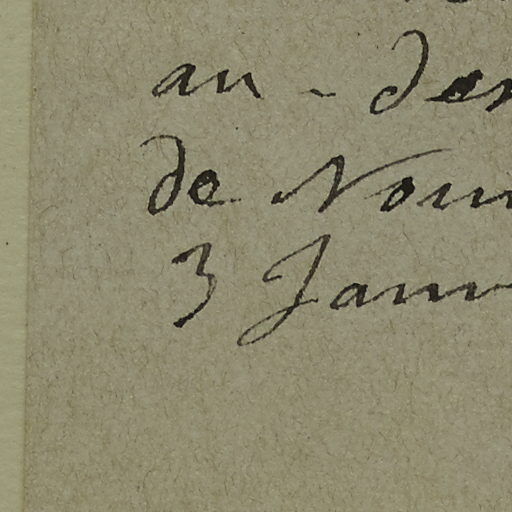 au-des
de Nou
3 Janv